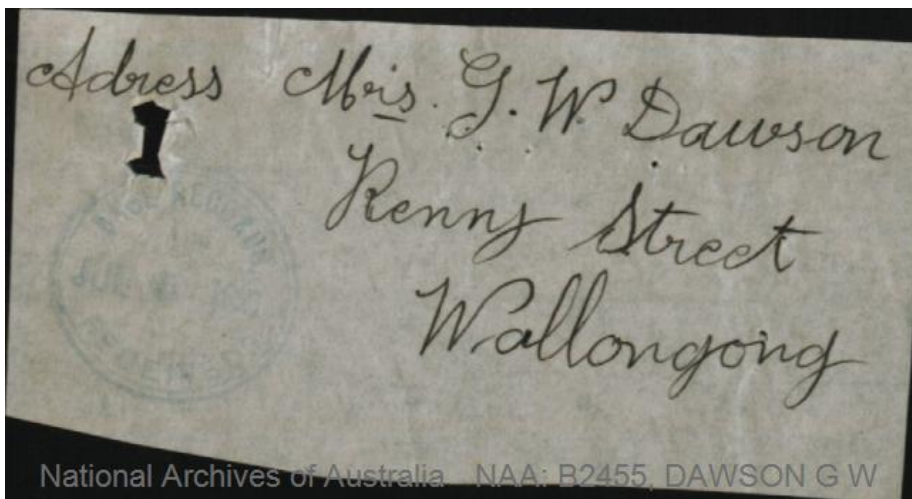 Adress Mrs. G. W. Dawson
Kenny Street
Wallongong
BASE RECORDS
National Archives of Australia NAA: B2455, DAWSON G W